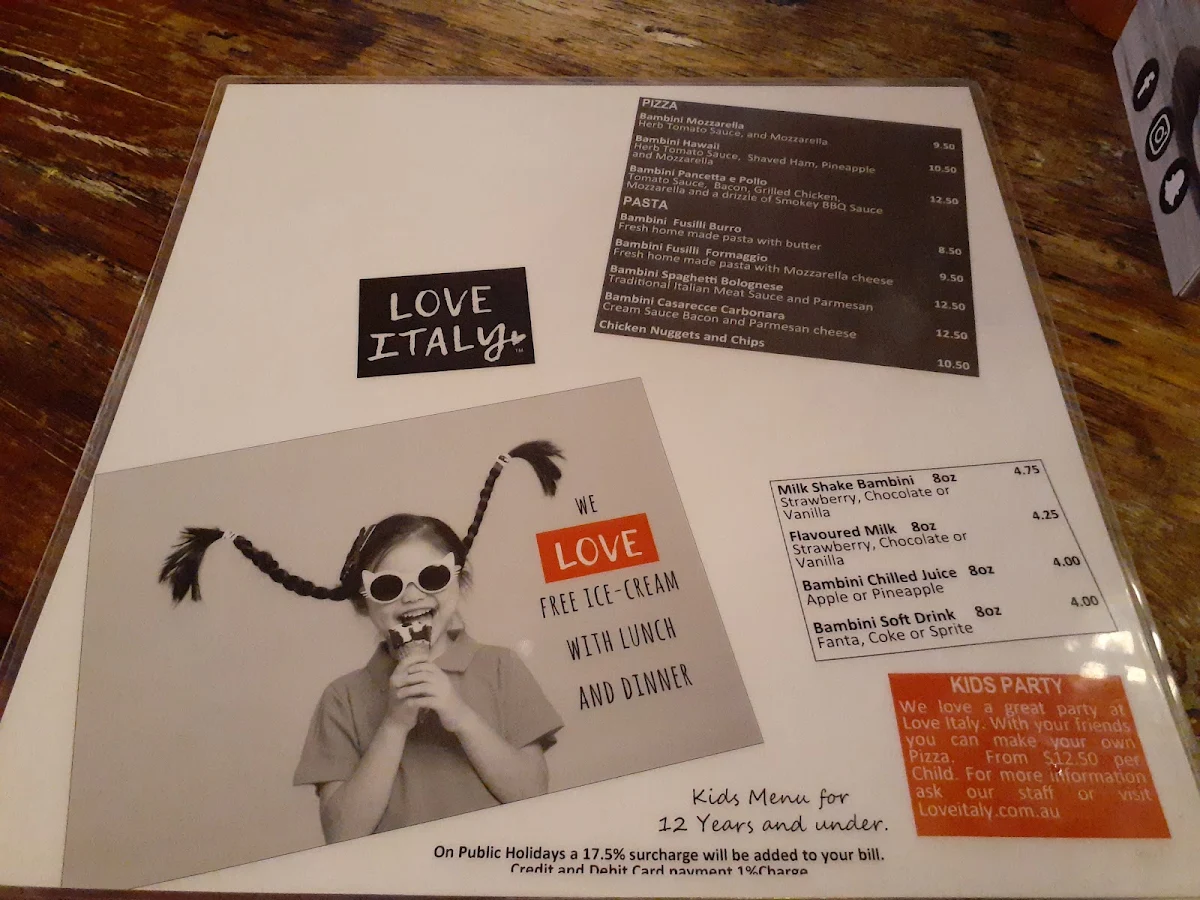 PIZZA
Bambini Mozzarella
Herb Tomato Sauce, and Mozzarella 9.50
Bambini Hawaii
Herb Tomato Sauce, Shaved Ham, Pineapple
and Mozzarella 10.50
Bambini Pancetta e Pollo
Tomato Sauce, Bacon, Grilled Chicken,
Mozzarella and a drizzle of Smokey BBQ Sauce 12.50
PASTA
Bambini Fusilli Burro
Fresh home made pasta with butter 8.50
Bambini Fusilli Formaggio
Fresh home made pasta with Mozzarella cheese 9.50
Bambini Spaghetti Bolognese
Traditional Italian Meat Sauce and Parmesan 12.50
Bambini Casarecce Carbonara
Cream Sauce Bacon and Parmesan cheese 12.50
Chicken Nuggets and Chips 10.50
LOVE
ITALY
TM
WE
LOVE
FREE ICE-CREAM
WITH LUNCH
AND DINNER
Milk Shake Bambini 8oz 4.75
Strawberry, Chocolate or
Vanilla
Flavoured Milk 8oz 4.25
Strawberry, Chocolate or
Vanilla
Bambini Chilled Juice 8oz 4.00
Apple or Pineapple
Bambini Soft Drink 8oz 4.00
Fanta, Coke or Sprite
KIDS PARTY
We love a great party at
Love Italy. With your friends
you can make your own
Pizza. From $12.50 per
Child. For more information
ask our staff or visit
Loveitaly.com.au
Kids Menu for
12 Years and under.
On Public Holidays a 17.5% surcharge will be added to your bill.
Credit and Debit Card payment 1%Charge